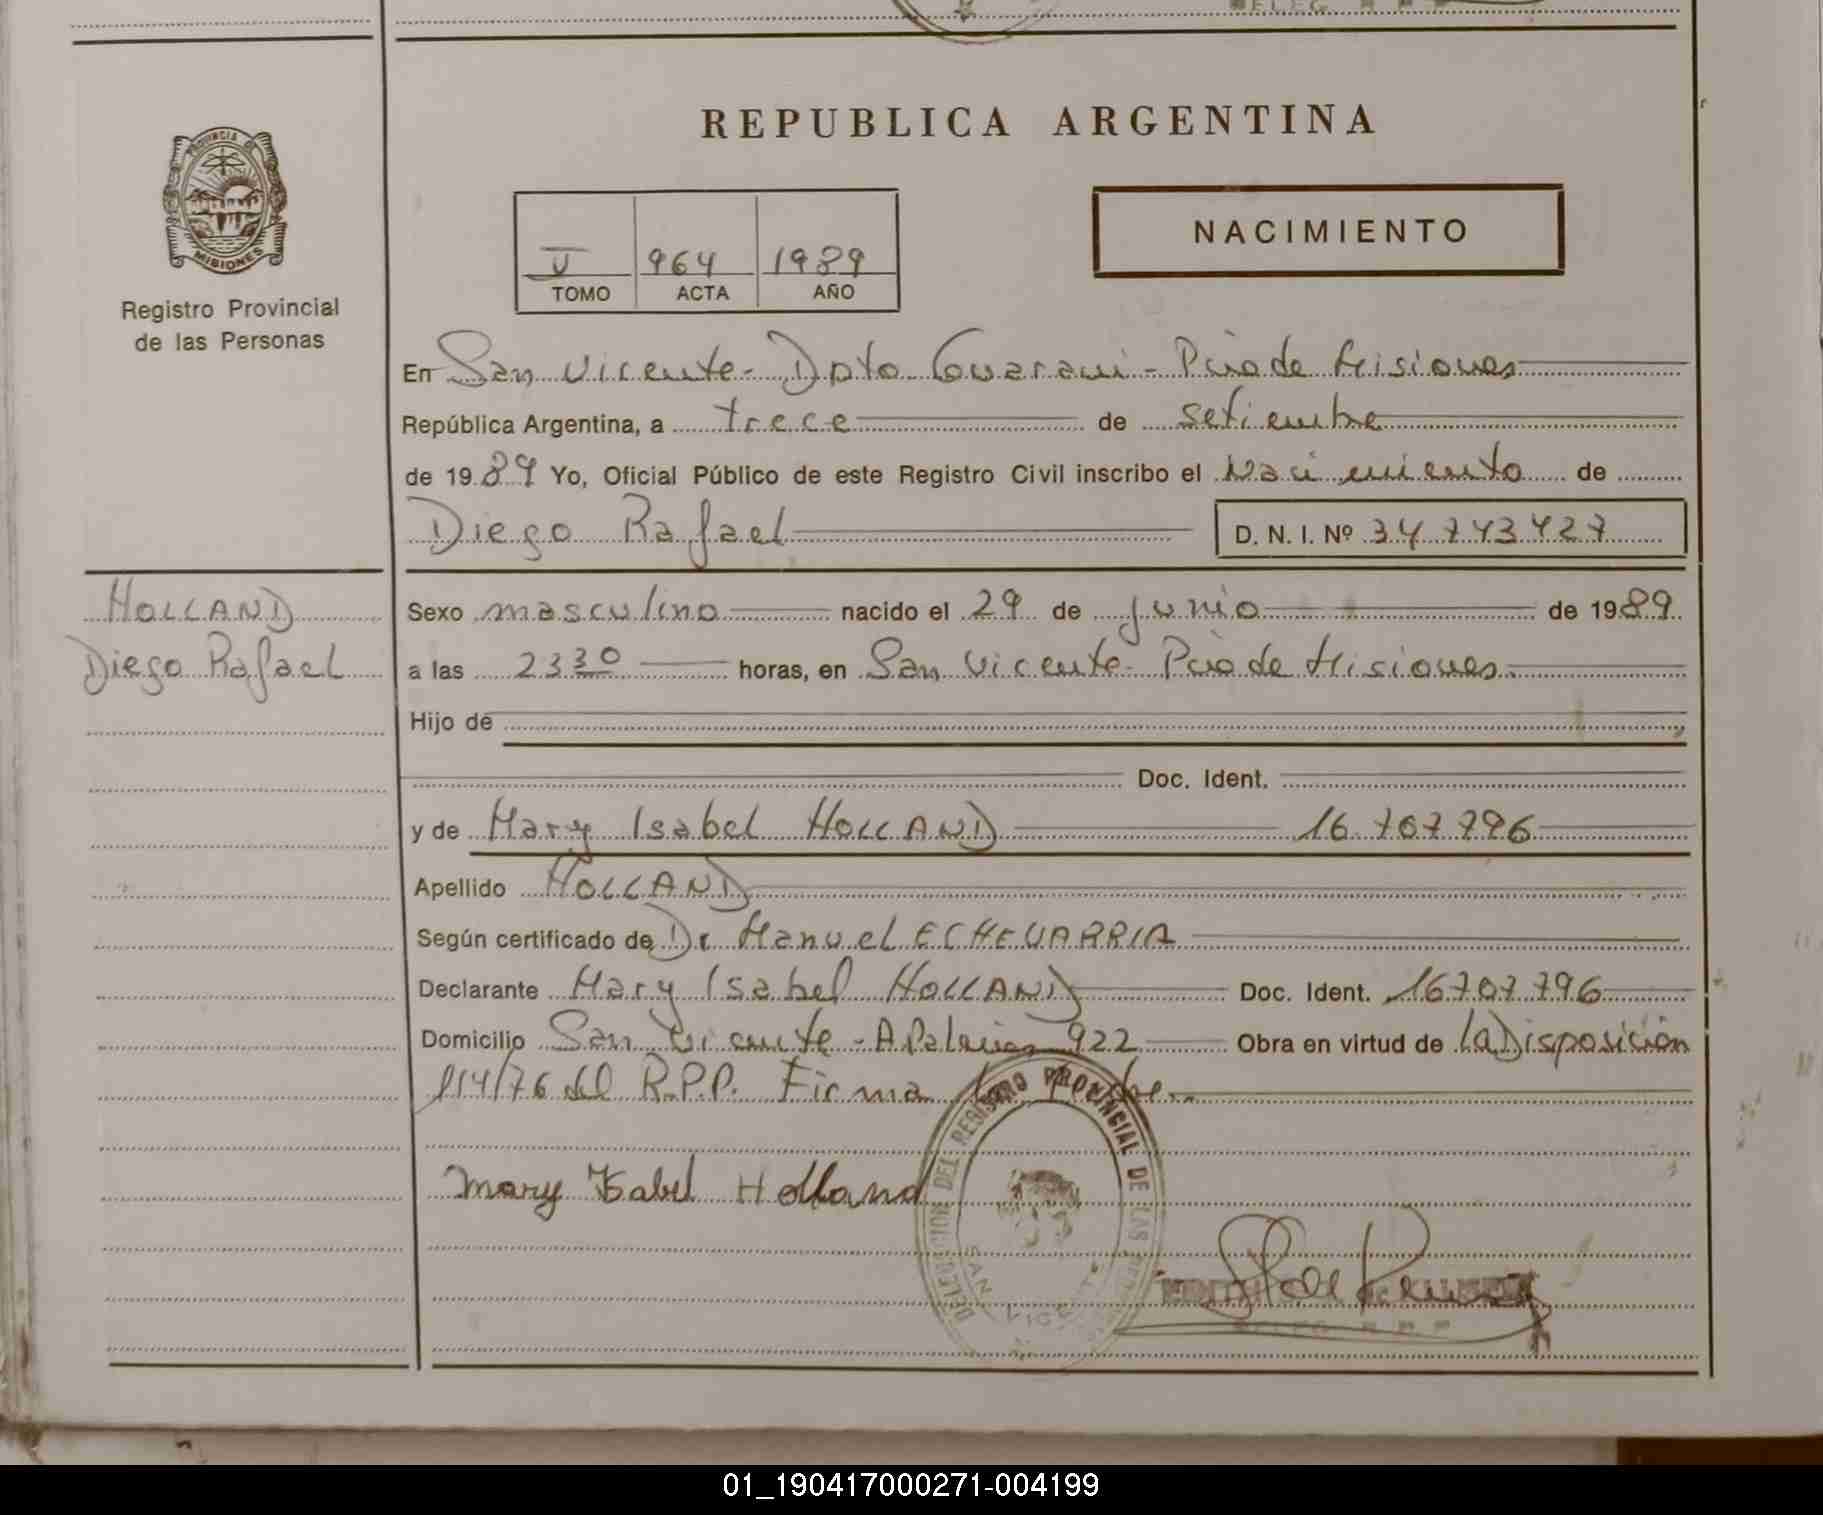 REPUBLICA ARGENTINA
PROVINCIA DE
MISIONES
Registro Provincial
de las Personas
V 964 1989
TOMO ACTA AÑO
NACIMIENTO
En San Vicente - Dpto Guarani - Pcia de Misiones
República Argentina, a trece de setiembre
de 1989 Yo, Oficial Público de este Registro Civil inscribo el Nacimiento de
Diego Rafael D. N. I. Nº 34743427
HOLLAND
Diego Rafael
Sexo masculino nacido el 29 de junio de 1989
a las 23 30 horas, en San Vicente - Pcia de Misiones.
Hijo de
Doc. Ident.
y de Mary Isabel HOLLAND 16.707.796
Apellido HOLLAND
Según certificado de Dr Manuel ECHEVARRIA
Declarante Mary Isabel HOLLAND Doc. Ident. 16707796
Domicilio San Vicente - 922 Obra en virtud de la Disposición
114/76 del R.P.P. Firma la Madre.
Mary Isabel Holland
DELEGACION DEL REGISTRO PROVINCIAL DE LAS
SAN VICENTE
DELEG. R.P.P.
01_190417000271-004199